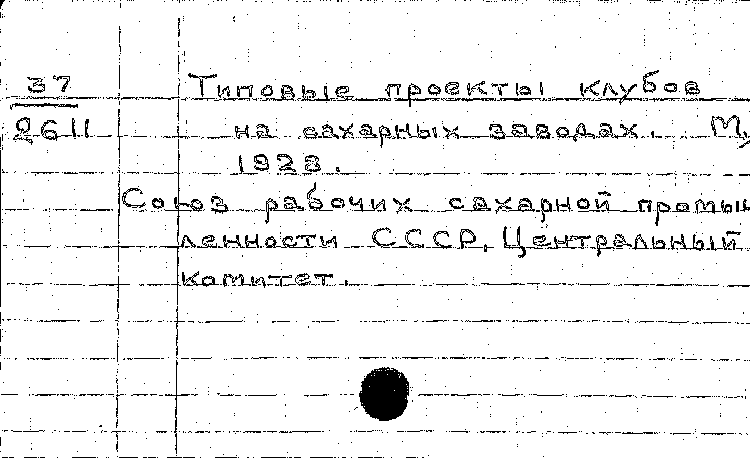 37
2611
Типовые проекты клубов
на сахарных заводах. М,
1928.
Союз рабочих сахарной промыш
ленности СССР, Центральный
комитет.